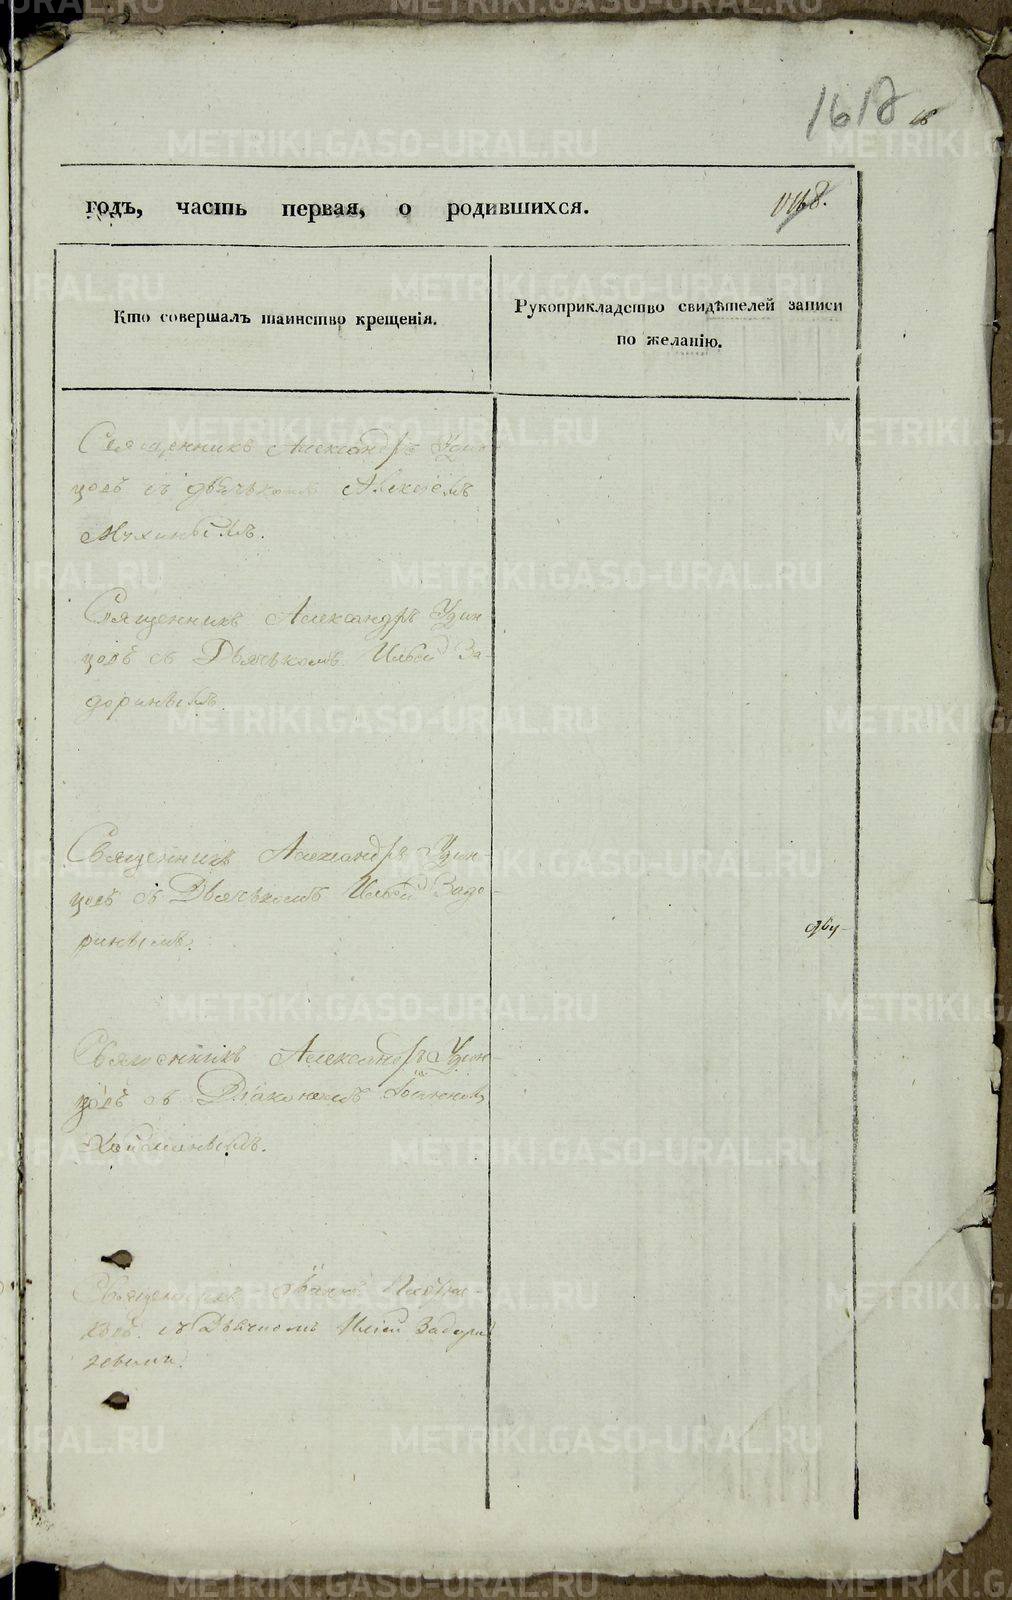 1618
1168.
годъ, часть первая, о родившихся.
Кто совершалъ таинство крещенія.
Рукоприкладство свидѣтелей записи
по желанію.
Священникъ Александръ Удин
цовъ съ дьячькомъ Алексѣемъ
Мухинымъ.
Священникъ Александръ Удин
цовъ съ Дьячькомъ Ильей За-
доринымъ.
Священникъ Александръ Удин-
цовъ съ Дьячькомъ Ильей Задо-
ринымъ.
Священникъ Александръ Удин-
цовъ съ Діакономъ Іоанномъ
Священникъ Іоаннъ
съ Дьячкомъ Иліей Задори
METRIKI.GASO-URAL.RU